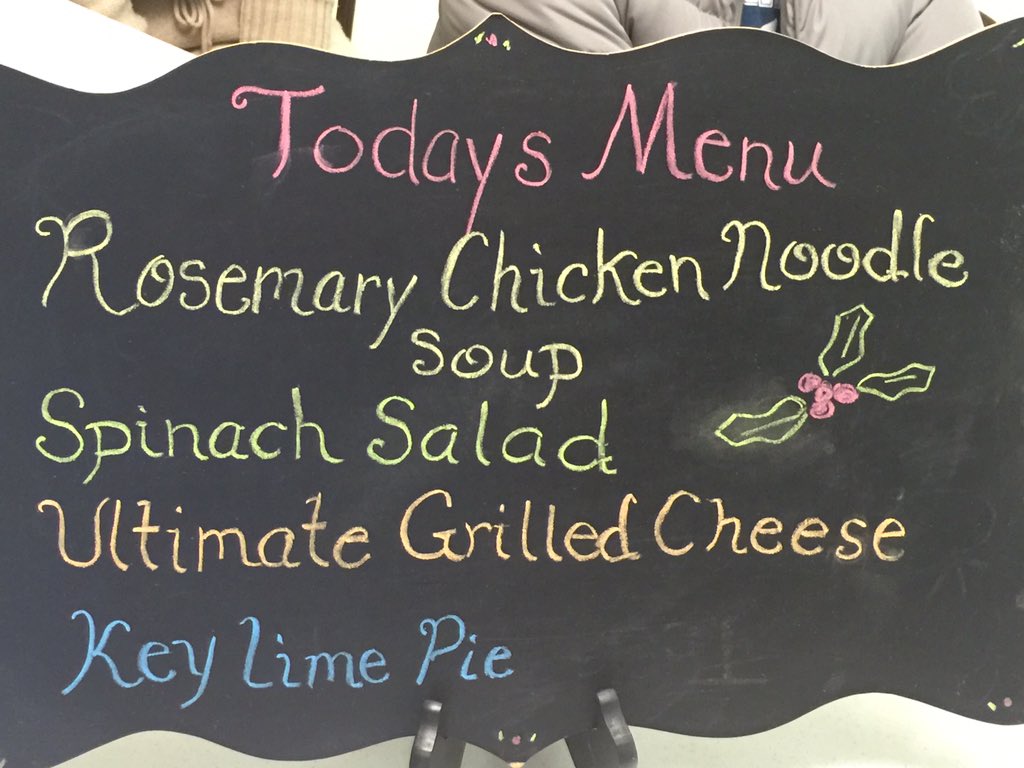 Todays Menu
Rosemary Chicken Noodle
Soup
Spinach Salad
Ultimate Grilled Cheese
Key Lime Pie